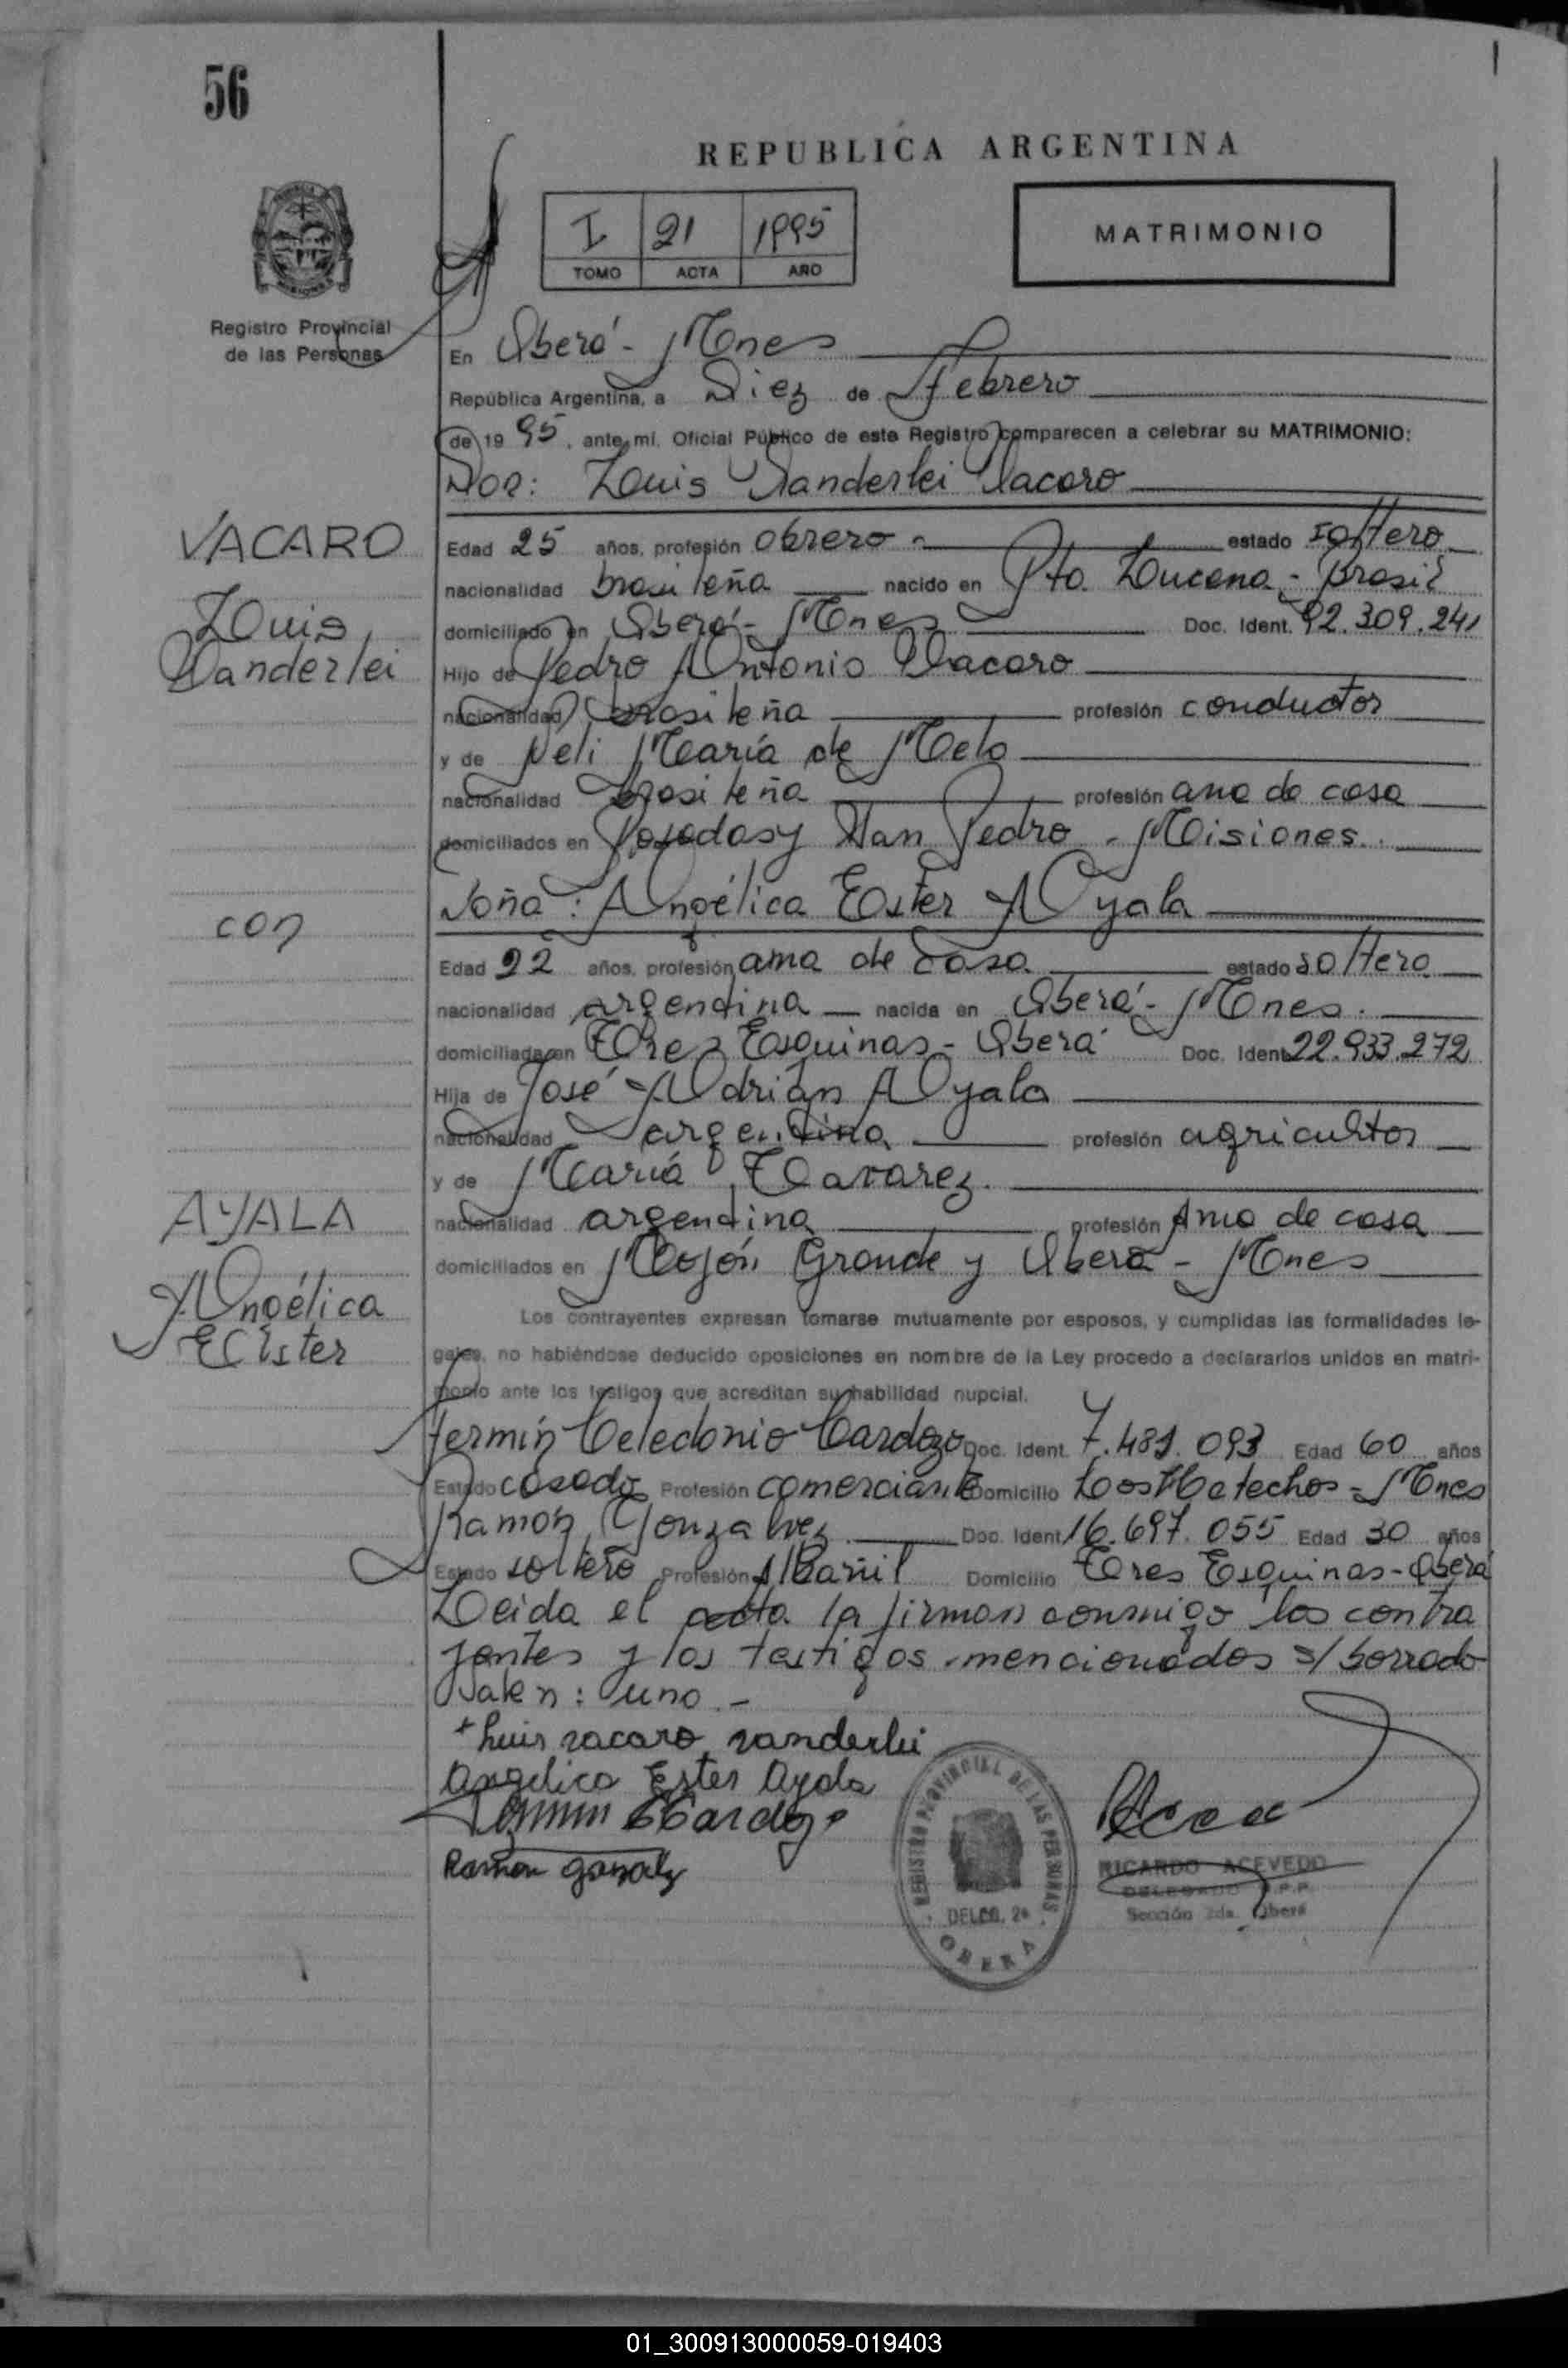 56
REPUBLICA ARGENTINA
I 21 1995
TOMO ACTA AÑO
MATRIMONIO
Registro Provincial
de las Personas
En Oberá - Mnes
República Argentina, a Diez de Febrero
de 19 95, ante mí, Oficial Público de este Registro comparecen a celebrar su MATRIMONIO:
Don: Luis Vanderlei Vacaro
VACARO
Luis
Vanderlei
Edad 25 años, profesión obrero estado soltero
nacionalidad brasileña nacido en Pto. Lucena - Brasil
domiciliado en Oberá - Mnes Doc. Ident. 92.309.241
Hijo de Pedro Antonio Vacaro
nacionalidad brasileña profesión conductor
y de Neli María de Melo
nacionalidad brasileña profesión ama de casa
domiciliados en Posadas y San Pedro - Misiones.
con
Doña: Angélica Ester Ayala
Edad 22 años, profesión ama de casa estado soltera
nacionalidad argentina nacida en Oberá - Mnes.
domiciliada en Tres Esquinas - Oberá Doc. Ident. 22.933.272
Hija de José Adrián Ayala
nacionalidad argentina profesión agricultor
y de María Tavarez.
AYALA
Angélica
Ester
nacionalidad argentina profesión Ama de casa
domiciliados en Mojón Grande y Oberá - Mnes
Los contrayentes expresan tomarse mutuamente por esposos, y cumplidas las formalidades le-
gales, no habiéndose deducido oposiciones en nombre de la Ley procedo a declararlos unidos en matri-
monio ante los testigos que acreditan su habilidad nupcial.
Fermín Celedonio Cardozo Doc. Ident. 7.481.093 Edad 60 años
Estado casado Profesión comerciante Domicilio Los Helechos - Mnes
Ramón Gonzalvez Doc. Ident. 16.697.055 Edad 30 años
Estado soltero Profesión Albañil Domicilio Tres Esquinas - Oberá
Leida el acta la firman conmigo los contra
yentes y los testigos mencionados s/ borrado
Valen: uno.-
+ Luis vacaro vanderlei
Angelica Ester Ayala
Cardozo
Ramon
REGISTRO PROVINCIAL DE LAS PERSONAS
DELEG. 2ª
OBERA
RICARDO ACEVEDO
DELEGADO R.P.P.
Sección 2da. Oberá
01_300913000059-019403